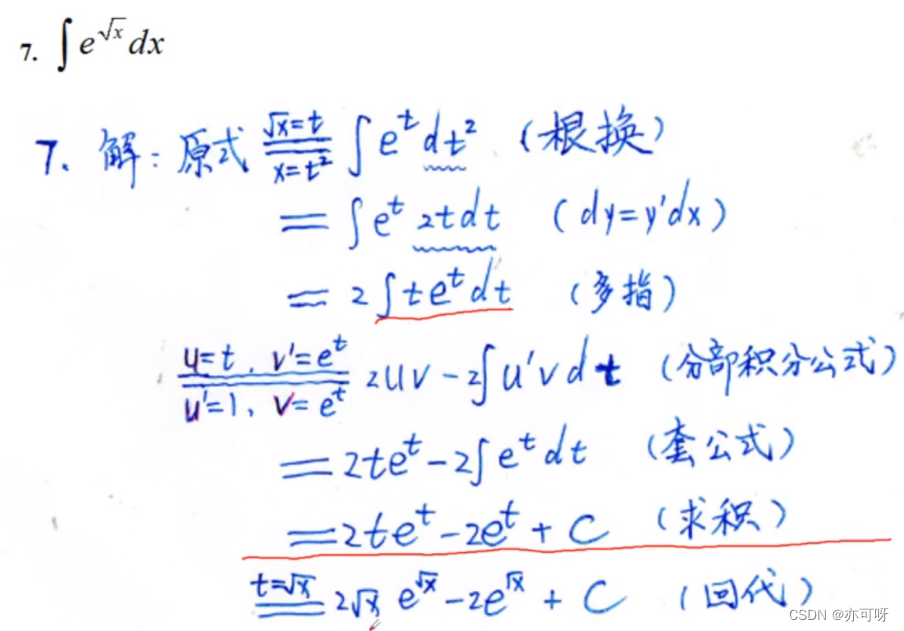 7. ∫e^√x dx
7. 解：原式 √x=t x=t² ∫e^t dt² （根换）
= ∫e^t 2tdt （dy=y'dx）
= 2∫te^t dt （多指）
u=t, v'=e^t u'=1, v=e^t 2uv-2∫u'vdt （分部积分公式）
=2te^t-2∫e^t dt （套公式）
=2te^t-2e^t+C （求积）
t=√x 2√x e^√x-2e^√x+C （回代）
CSDN @亦可呀